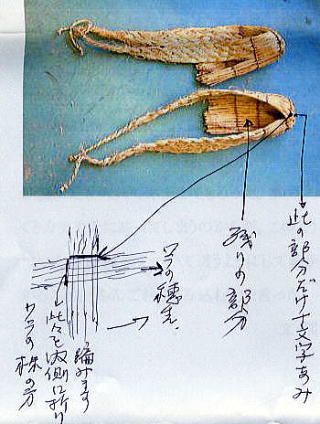 此の部分だけ十文字あみ
残りの部分
ワラの穂先
此々を内側に折り
編みます
ワラの株の方